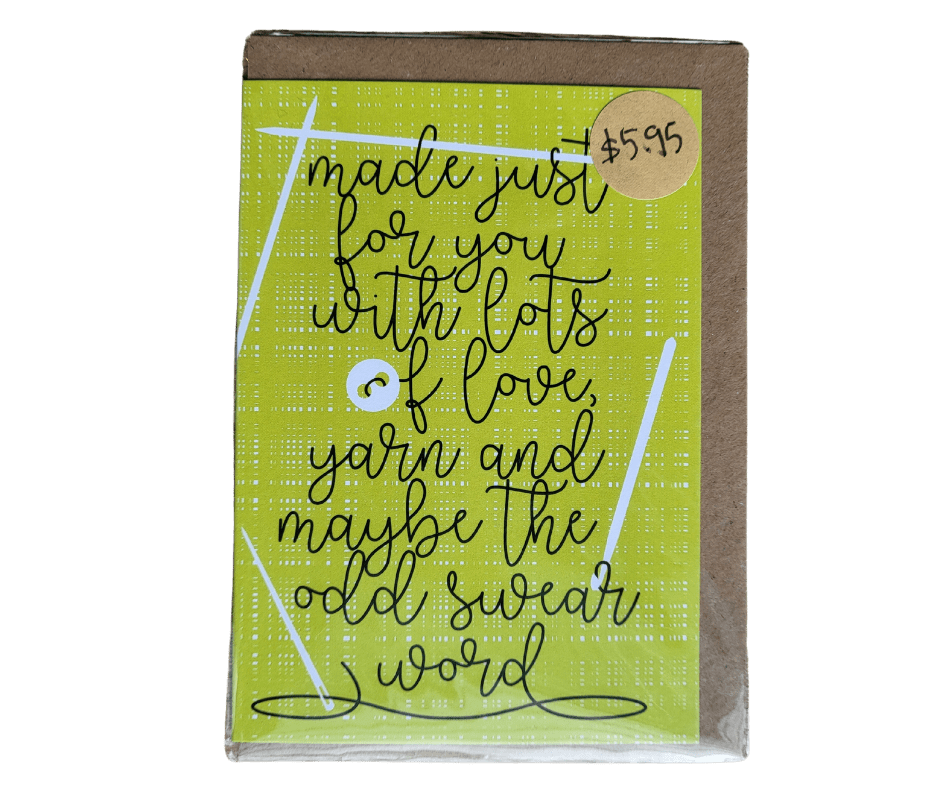 $5.95
made just
for you
with lots
of love,
yarn and
maybe the
odd swear
word